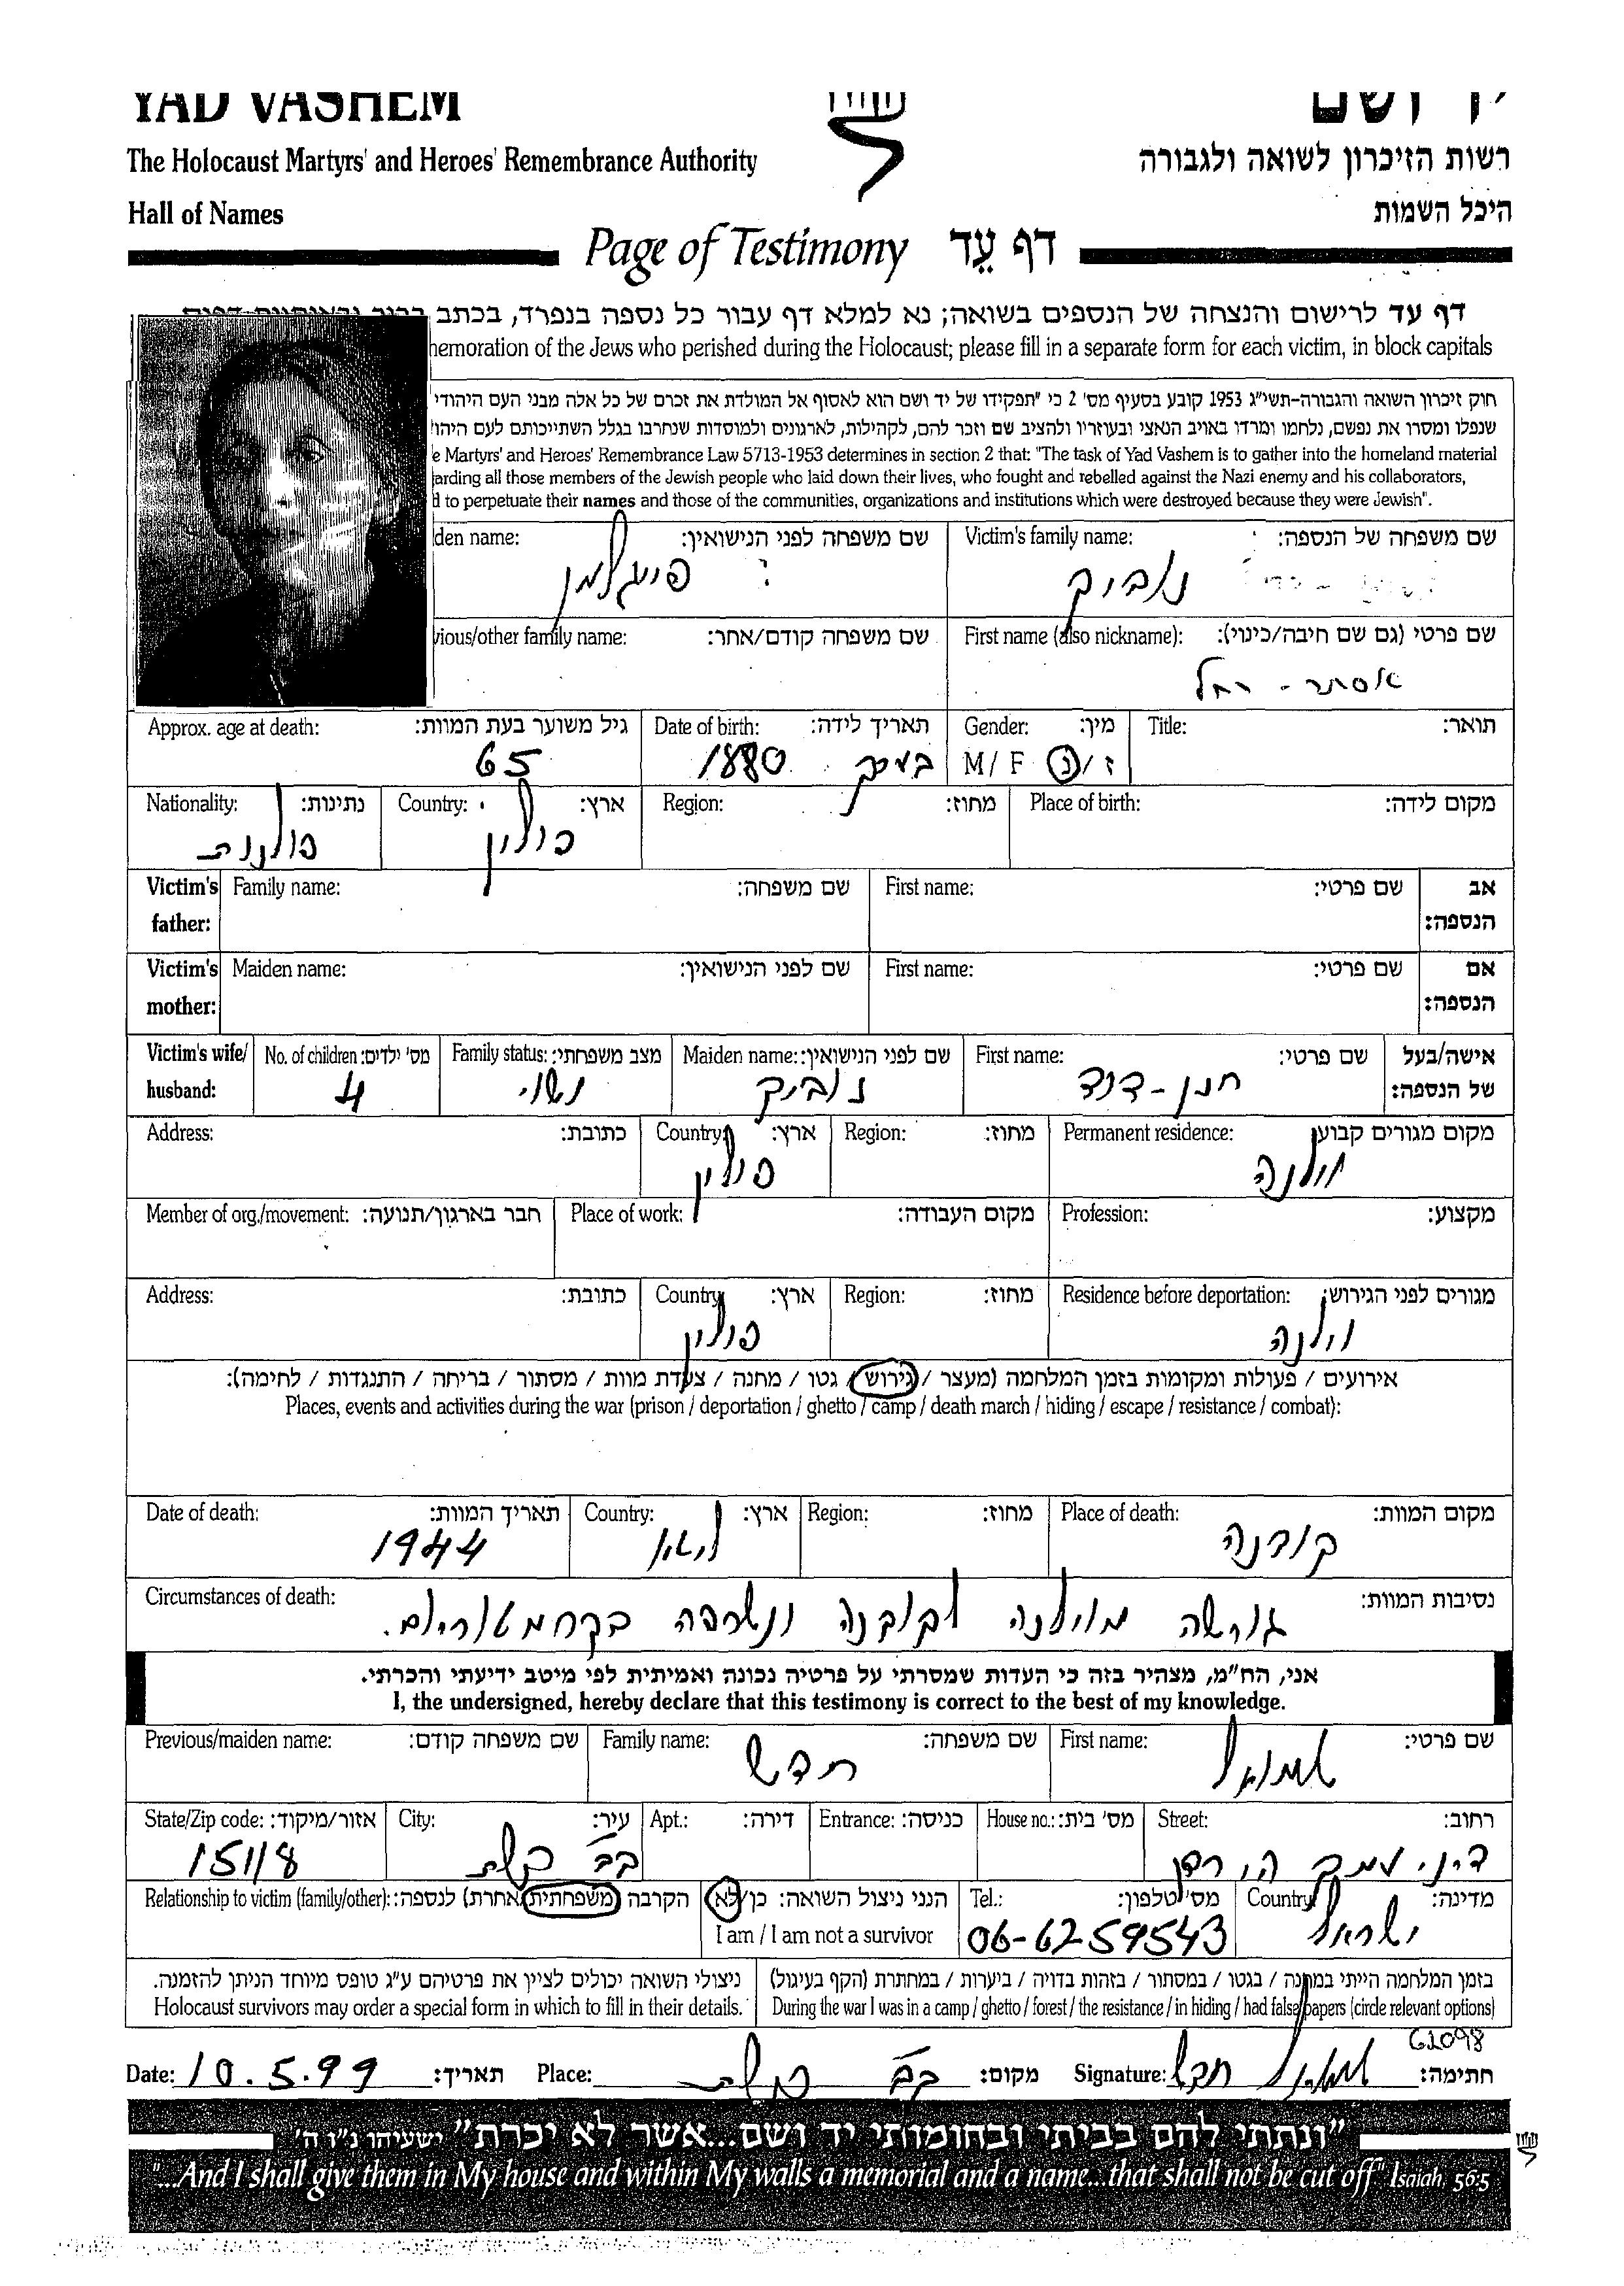 YAD VASHEM
יד ושם
The Holocaust Martyrs' and Heroes' Remembrance Authority
רשות הזיכרון לשואה ולגבורה
Hall of Names
היכל השמות
Page of Testimony דף עֵד
דף עד לרישום והנצחה של הנספים בשואה; נא למלא דף עבור כל נספה בנפרד, בכתב
memoration of the Jews who perished during the Holocaust; please fill in a separate form for each victim, in block capitals
חוק זיכרון השואה והגבורה-תשי"ג 1953 קובע בסעיף מס' 2 כי "תפקידו של יד ושם הוא לאסוף אל המולדת את זכרם של כל אלה מבני העם היהודי
שנפלו ומסרו את נפשם, נלחמו ומרדו באויב הנאצי ובעוזריו ולהציב שם וזכר להם, לקהילות, לארגונים ולמוסדות שנחרבו בגלל השתייכותם לעם היהו
e Martyrs' and Heroes' Remembrance Law 5713-1953 determines in section 2 that: "The task of Yad Vashem is to gather into the homeland material
arding all those members of the Jewish people who laid down their lives, who fought and rebelled against the Nazi enemy and his collaborators,
d to perpetuate their names and those of the communities, organizations and institutions which were destroyed because they were Jewish".
שם משפחה של הנספה: Victim's family name:
נוביק
שם משפחה לפני הנישואין: den name:
פייגלמן
שם פרטי (גם שם חיבה/כינוי): First name (also nickname):
אסתר - רחל
שם משפחה קודם/אחר: vious/other family name:
תואר: Title:
מין: Gender:
ז/נ M/ F
תאריך לידה: Date of birth:
1880
גיל משוער בעת המוות: Approx. age at death:
65
מקום לידה: Place of birth:
מחוז: Region:
ארץ: Country:
פולין
נתינות: Nationality:
פולנית
אב הנספה: שם פרטי: First name: שם משפחה: Family name: Victim's father:
אם הנספה: שם פרטי: First name: שם לפני הנישואין: Maiden name: Victim's mother:
אישה/בעל של הנספה: שם פרטי: First name:
חנן-דוד
שם לפני הנישואין: Maiden name:
נוביק
מצב משפחתי: Family status:
נשוי
מס' ילדים: No. of children:
4
Victim's wife/ husband:
מקום מגורים קבוע: Permanent residence:
וילנה
מחוז: Region:
ארץ: Country:
פולין
כתובת: Address:
מקצוע: Profession:
מקום העבודה: Place of work:
חבר בארגון/תנועה: Member of org./movement:
מגורים לפני הגירוש: Residence before deportation:
וילנה
מחוז: Region:
ארץ: Country:
פולין
כתובת: Address:
אירועים / פעולות ומקומות בזמן המלחמה (מעצר / גירוש / גטו / מחנה / צעדת מוות / מסתור / בריחה / התנגדות / לחימה):
Places, events and activities during the war (prison / deportation / ghetto / camp / death march / hiding / escape / resistance / combat):
מקום המוות: Place of death:
מחוז: Region:
ארץ: Country:
תאריך המוות: Date of death:
1944
נסיבות המוות: Circumstances of death:
גורשה מוילנה לקובנה ונשרפה בקרמטוריום.
אני, הח"מ, מצהיר בזה כי העדות שמסרתי על פרטיה נכונה ואמיתית לפי מיטב ידיעתי והכרתי.
I, the undersigned, hereby declare that this testimony is correct to the best of my knowledge.
שם פרטי: First name:
שמואל
שם משפחה: Family name:
חדש
שם משפחה קודם: Previous/maiden name:
רחוב: Street:
ד.נ. עמק הירדן
מס' בית: House no.:
כניסה: Entrance:
דירה: Apt.:
עיר: City:
אזור/מיקוד: State/Zip code:
15118
מדינה: Country:
ישראל
מס' טלפון: Tel.:
06-6259543
הנני ניצול השואה: כן/לא
I am / I am not a survivor
הקרבה (משפחתית/אחרת) לנספה: Relationship to victim (family/other):
בזמן המלחמה הייתי במחנה / בגטו / במסתור / בזהות בדויה / ביערות / במחתרת (הקף בעיגול)
During the war I was in a camp / ghetto / forest / the resistance / in hiding / had false papers (circle relevant options)
ניצולי השואה יכולים לציין את פרטיהם ע"ג טופס מיוחד הניתן להזמנה.
Holocaust survivors may order a special form in which to fill in their details.
62098
חתימה: שמואל חדש Signature:
מקום: Place:
תאריך: 10.5.99 Date:
"ונתתי להם בביתי ובחומותי יד ושם...אשר לא יכרת" ישעיהו נ"ו ה'
"...And I shall give them in My house and within My walls a memorial and a name...that shall not be cut off" Isaiah, 56:5